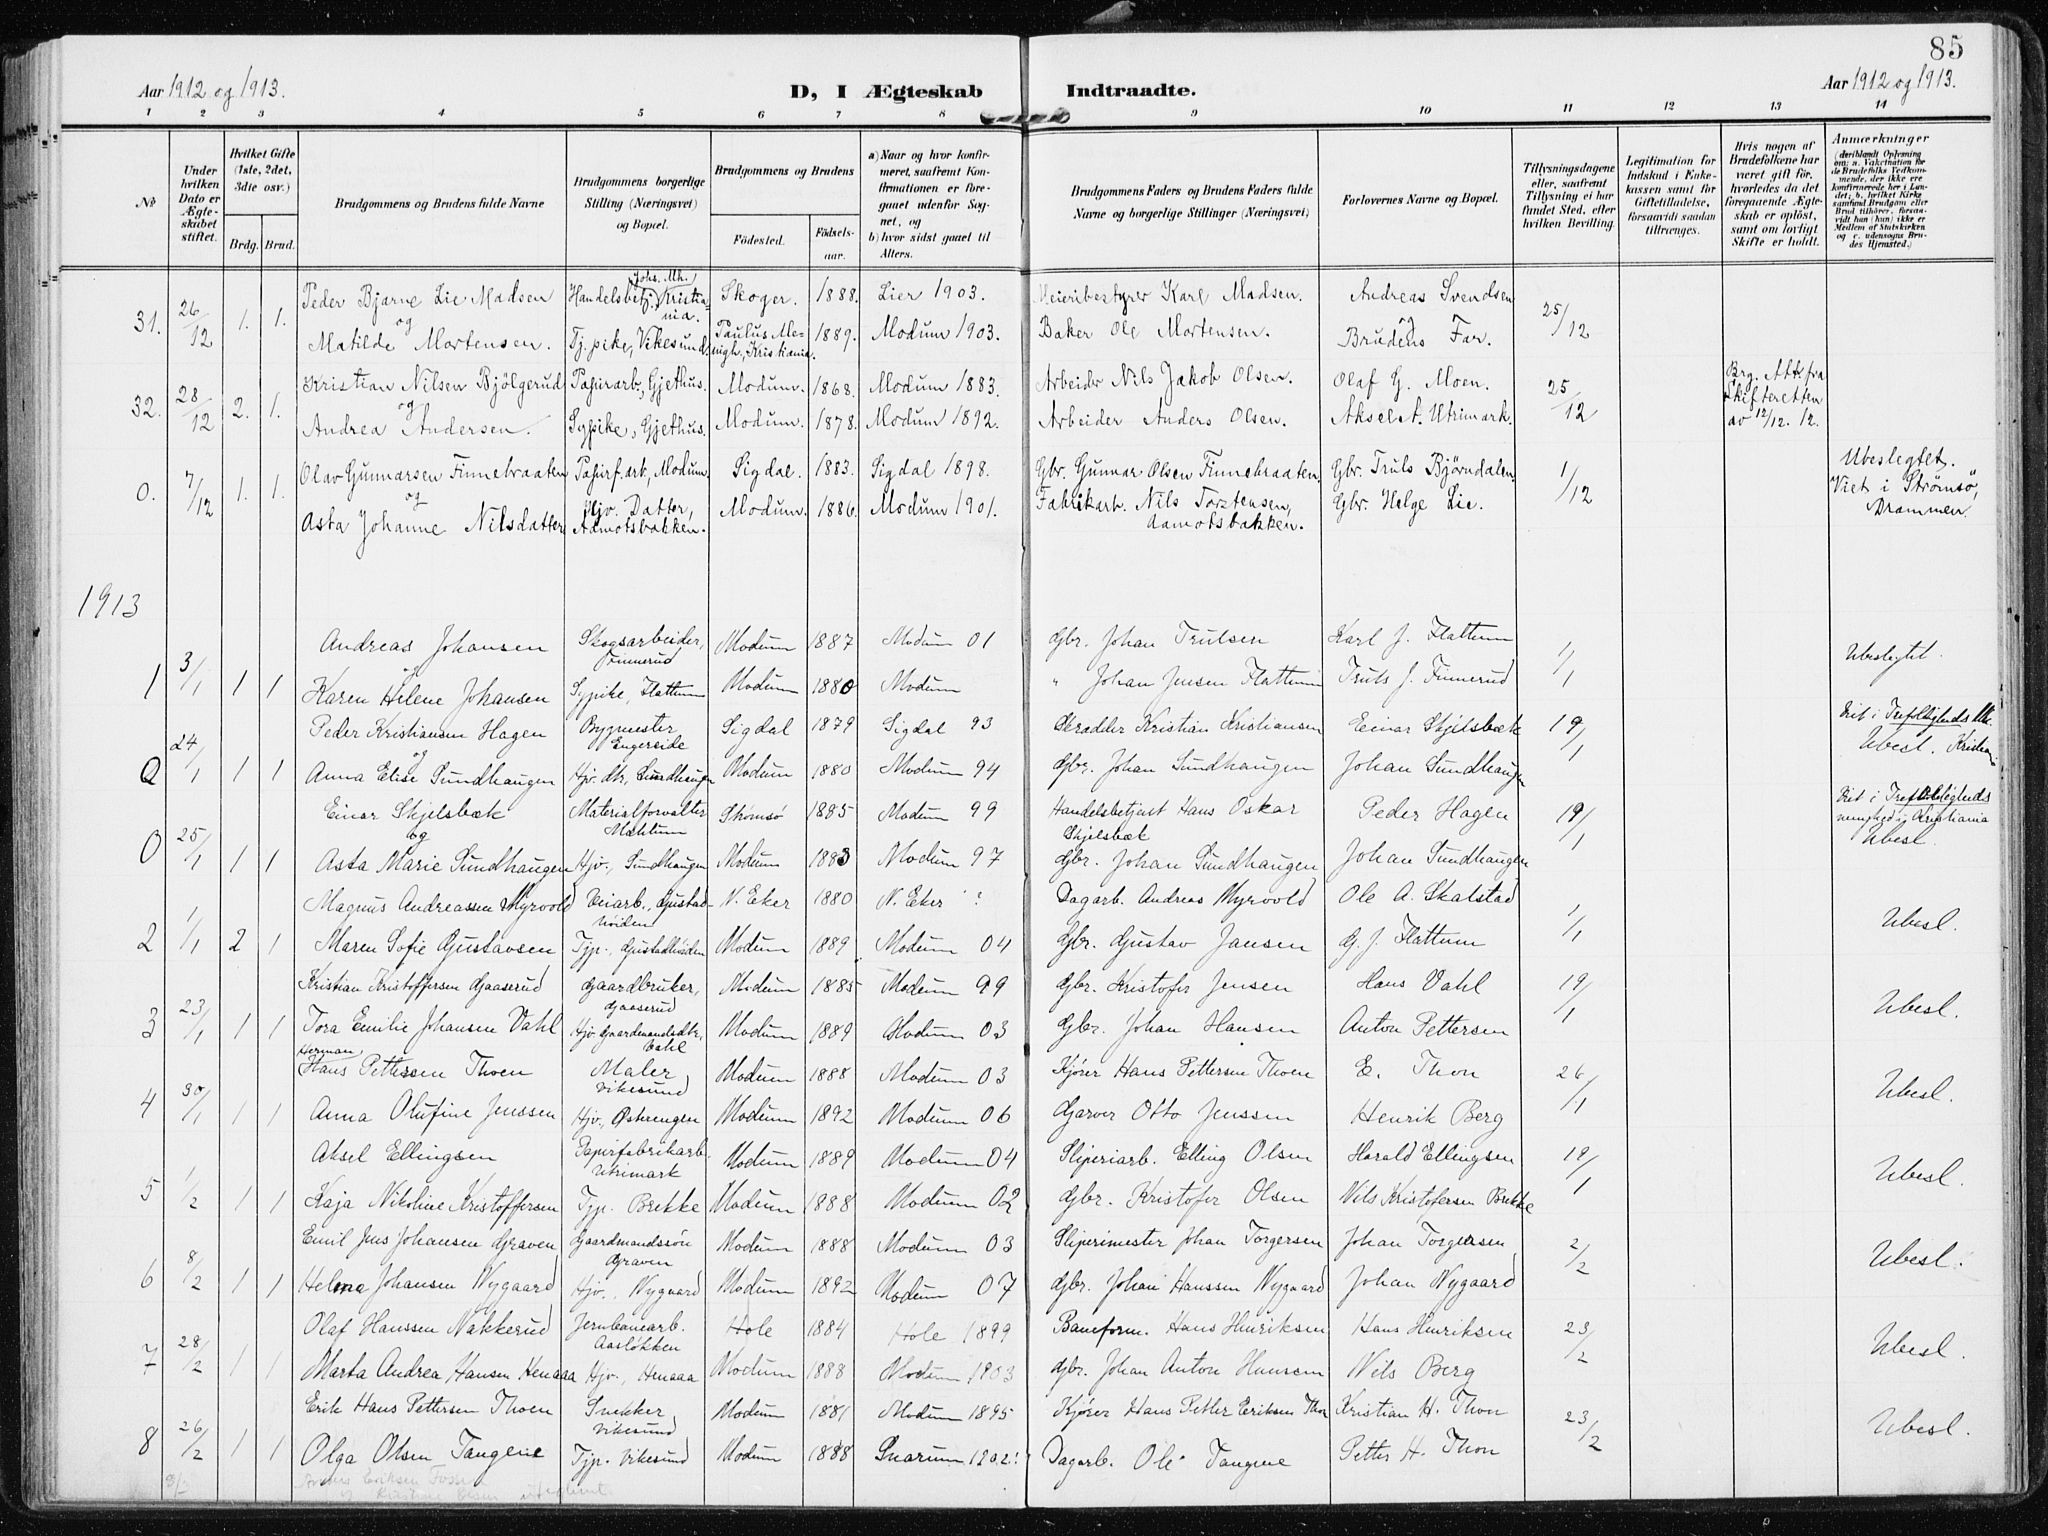 85
Aar 1912 og 1913.
D, I Ægteskab Indtraadte.
Aar 1912 og 1913.
1 2 3 4 5 6 7 8 9 10 11 12 13 14
No
Under hvilken Dato er Ægteskabet stiftet.
Hvilket Gifte (1ste, 2det, 3die osv.)
Brdg. Brud.
Brudgommens og Brudens fulde Navne
Brudgommens borgerlige Stilling (Næringsvei) og Bopæl.
Brudgommens og Brudens
Fødested. Fødselsaar.
a) Naar og hvor konfirmeret, saafremt Konfirmationen er foregaaet udenfor Sognet, og
b) hvor sidst gaaet til Alters.
Brudgommens Faders og Brudens Faders fulde Navne og borgerlige Stillinger (Næringsvei)
Forlovernes Navne og Bopæl.
Tillysningsdagene eller, saafremt Tillysning ei har fundet Sted, efter hvilken Bevilling.
Legitimation for Indskud i Enkekassen samt for Giftetilladelse, forsaavidt saadan tiltrænges.
Hvis nogen af Brudefolkene har været gift før, hvorledes da det foregaaende Ægteskab er opløst, samt om lovligt Skifte er holdt.
Anmærkninger
(deriblandt Oplysning om: a. Vakcination for de Brudefolks Vedkommende, der ikke ere konfirmerede her i Landet; b. hvilket Kirkesamfund Brudgom eller Brud tilhører, forsaavidt han (hun) ikke er Medlem af Statskirken og c. udensogns Brudes Hjemsted.)
31. 26/12 1. 1. Peder Bjarne Lie Madsen Handelsbetj. Johs. Mh., Kristiania. Skoger. 1888. Lier 1903. Meieribestyrer Karl Madsen. Andreas Svendsen 25/12
og
Matilde Mortensen. Tj. pike, Vikesund. Paulus Menigh., Kristiania. 1889. Modum 1903. Baker Ole Mortensen. og Brudens Far.
32. 28/12 2. 1. Kristian Nilsen Bjölgerud Papirarb., Gjethus. Modum. 1868. Modum 1883. Arbeider Nils Jakob Olsen. Olaf G. Moen. 25/12 Brg. Att. fra Skifteretten av 12/12. 12.
og
Andrea Andersen. Sypike, Gjethus. Modum. 1878. Modum 1892. Arbeider Anders Olsen. Aksel A. Utrimark.
0. 7/12 1. 1. Olav Gunnarsen Finnebraaten Papirf. arb., Modum. Sigdal. 1883. Sigdal 1898. Gbr. Gunnar Olsen Finnebraaten. Gbr. Truls Bjørndalen 1/12 Ubeslegtet. Viet i Strømsö, Drammen
og
Asta Johanne Nilsdatter Hjv. Datter, Aamotsbakken. Modum. 1886. Modum 1901. Fabrikarb. Nils Torstensen, Aamotsbakken. Gbr. Helge Lie.
1913
1 3/1 1 1 Andreas Johansen Skogsarbeider, Finnerud Modum 1887 Modum 01 Gbr. Johan Trulsen Karl J. Flattum 1/1 Ubeslegtet.
og
Karen Helene Johansen Sypike, Flattum Modum 1880 Modum " Johan Jensen Flattum Truls J. Finnerud
0 24/1 1 1 Peder Kristiansen Hagen Bygmester Engereide Sigdal 1879 Sigdal 93 Skrædder Kristian Kristiansen Einar Skjelsbæk 19/1 Viet i Trefoldigheds Mh. Ubesl. Kristiania
og
Anna Elise Sundhaugen Hjv. dtr, Sundhaugen Modum 1880 Modum 94 Gbr. Johan Sundhaugen Johan Sundhaugen
0 25/1 1 1 Einar Skjelsbæk Materialforvalter Strømsø 1885 Modum 99 Handelsbetjent Hans Oskar Skjelsbæk Peder Hagen 19/1 Viet i Trefoldigheds menighed i Kristiania Ubesl.
og
Asta Marie Sundhaugen Hjv., Sundhaugen Modum 1883 Modum 97 Gbr. Johan Sundhaugen Johan Sundhaugen
2 1/1 2 1 Magnus Andreassen Myrvold Veiarb., Gustadhøiden N. Eker 1880 N. Eker ? Dagarb. Andreas Myrvold Ole A. Skalstad 1/1 Ubesl.
Maren Sofie Gustavsen Tjp., Gustadhøiden Modum 1889 Modum 04 Gbr. Gustav Jansen G. J. Flattum
3 23/1 1 1 Kristian Kristoffersen Gaaserud Gaardbruker, Gaaserud Modum 1885 Modum 99 Gbr. Kristofer Jensen Hans Vahl 19/1 Ubesl.
Tora Emilie Johansen Vahl Hjv. Gaardmandsdtr. Vahl Modum 1889 Modum 03 Gbr. Johan Hansen Anton Pettersen
4 30/1 1 1 Herman Hans Pettersen Thoen Maler Vikesund Modum 1888 Modum 03 Kjører Hans Pettersen Thoen E. Thon 26/1 Ubesl.
Anna Olufine Jenssen Hjv., Østerengen Modum 1892 Modum 06 Garver Otto Jenssen Henrik Berg
5 1/2 1 1 Aksel Ellingsen Papirfabrikarb. Utrimark Modum 1889 Modum 04 Sliperiarb. Elling Olsen Harald Ellingsen 19/1 Ubesl.
Kaja Nikoline Kristoffersen Tjp. Brekke Modum 1888 Modum 02 Gbr. Kristofer Olsen Nils Kristofersen Brekke
6 8/2 1 1 Emil Jens Johansen Graven Gaardmandssøn Graven Modum 1888 Modum 03 Sliperimester Johan Torgersen Johan Torgersen 2/2 Ubesl.
Helma Johansen Nygaard Hjv., Nygaard Modum 1892 Modum 07 Gbr. Johan Hanssen Nygaard Johan Nygaard
7 28/2 1 1 Olaf Hanssen Nakkerud Jernbanearb. Aasløkken Hole 1884 Hole 1899 Baneform. Hans Henriksen Hans Henriksen 23/2 Ubesl.
Marta Andrea Hansen Henaaa Hjv., Henaaa Modum 1888 Modum 1903 Gbr. Johan Anton Hansen Nils Berg
8 26/2 1 1 Erik Hans Pettersen Thoen Snekker Vikesund Modum 1881 Modum 1895 Kjører Hans Petter Eriksen Thon Kristian H. Thon 23/2 Ubesl.
Olga Olsen Tangene Tjp. Vikesund Modum 1888 Snarum 1902. Dagarb. Ole Tangene Petter H. Thon